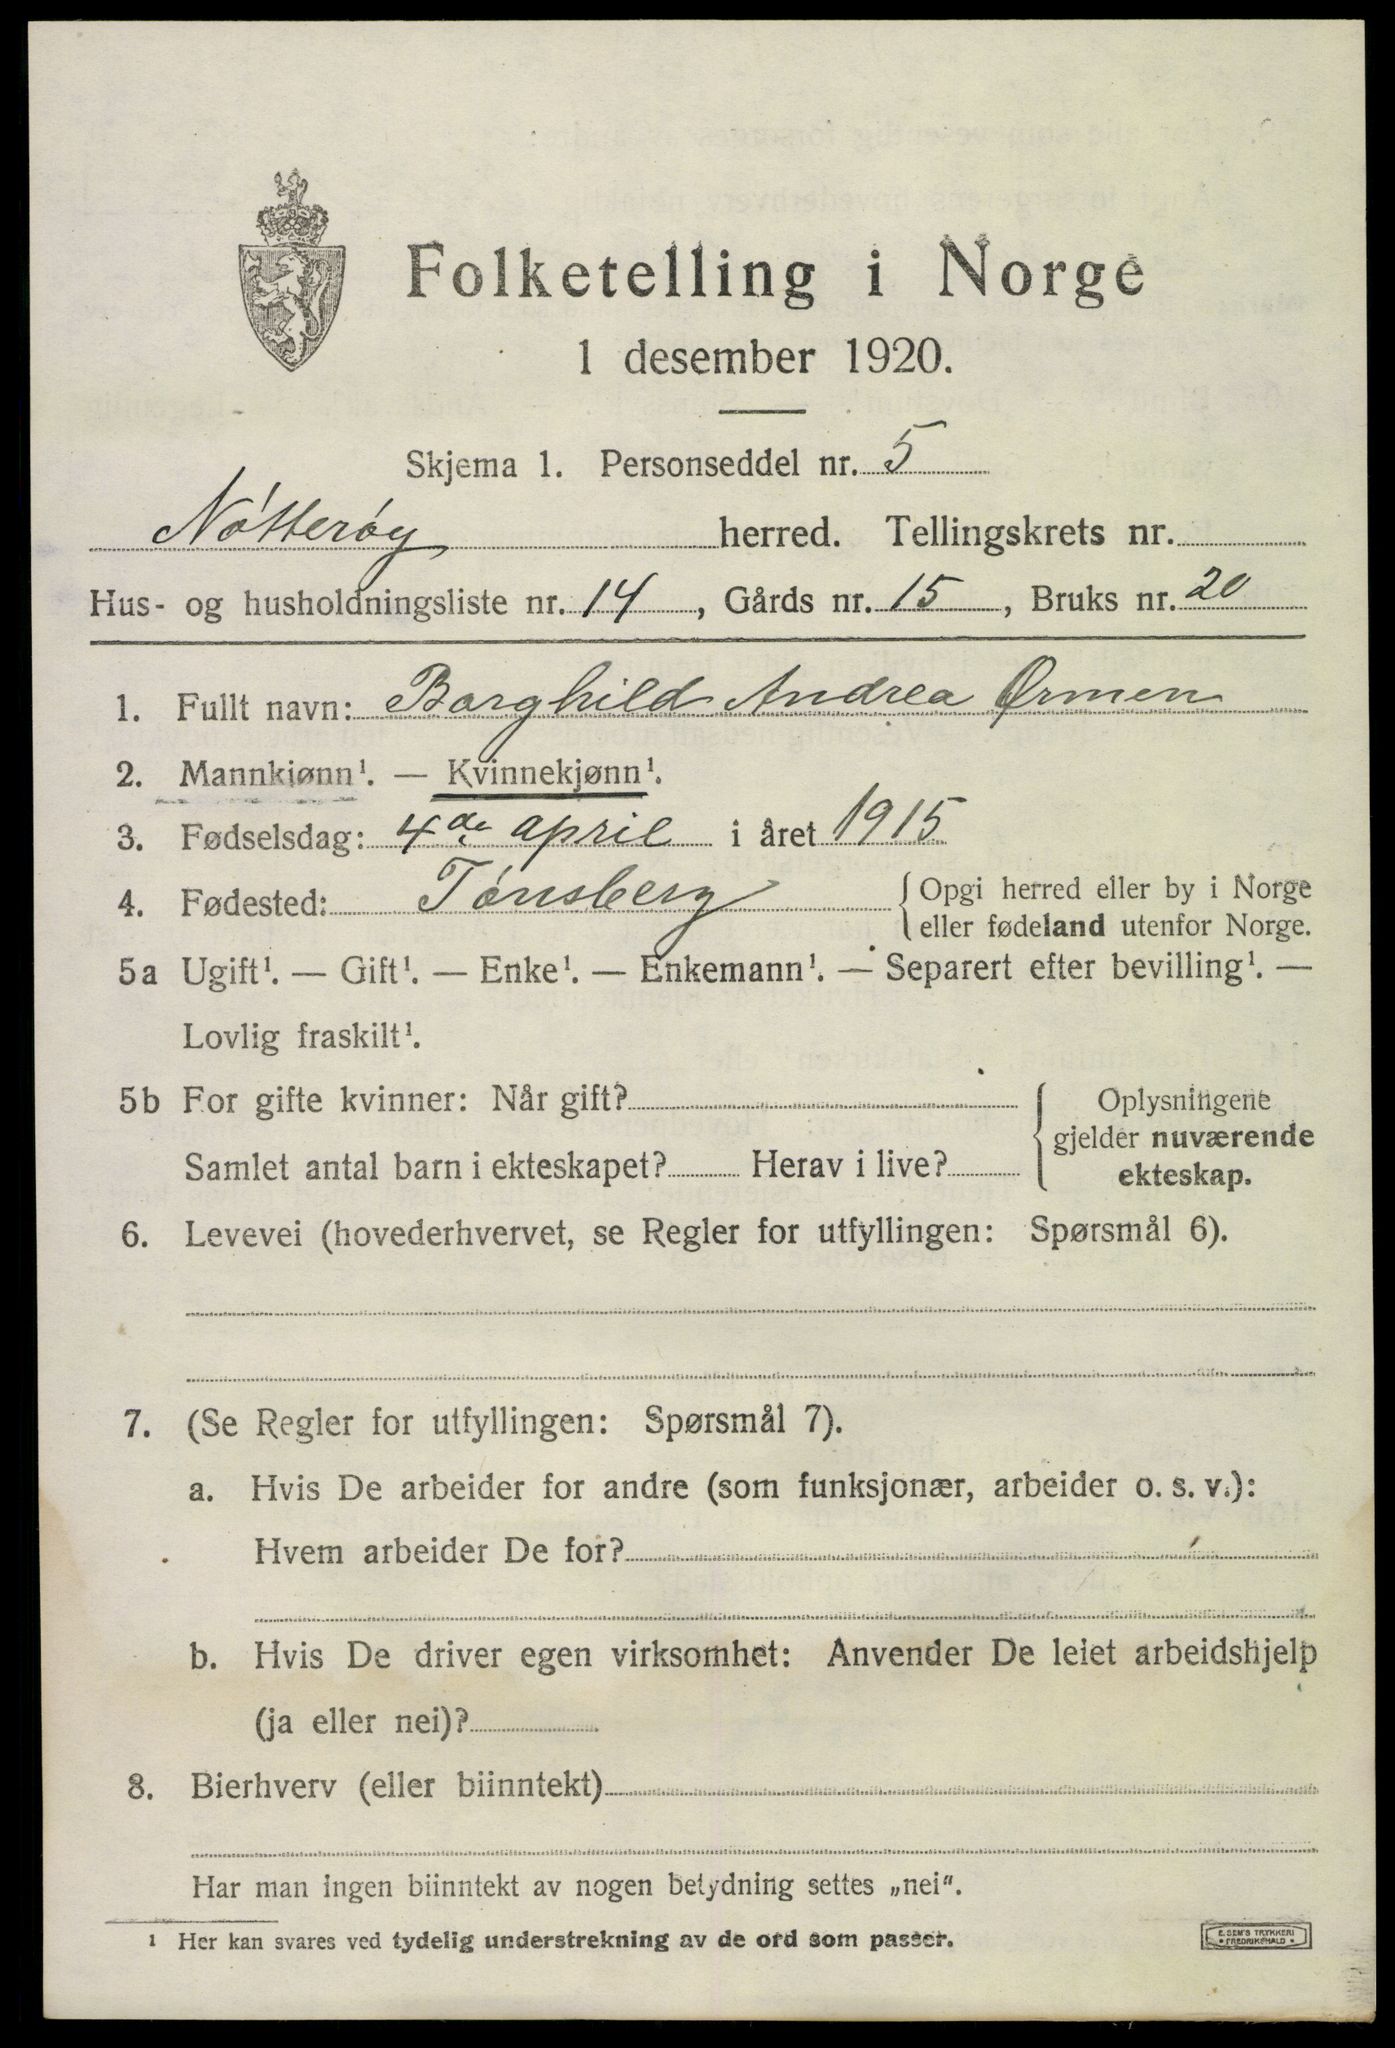 Folketelling i Norge
1 desember 1920.
Skjema 1. Personseddel nr. 5
Nøtterøy herred. Tellingskrets nr.
Hus- og husholdningsliste nr. 14, Gårds nr. 15, Bruks nr. 20
1. Fullt navn: Borghild Andrea Ørmen
2. Mannkjønn¹. — Kvinnekjønn¹.
3. Fødselsdag: 4de april i året 1915
4. Fødested: Tønsberg {Opgi herred eller by i Norge
eller fødeland utenfor Norge.
5a Ugift¹. — Gift¹. — Enke¹. — Enkemann¹. — Separert efter bevilling¹. —
Lovlig fraskilt¹.
5b For gifte kvinner: Når gift? { Oplysningene
gjelder nuværende
Samlet antal barn i ekteskapet? Herav i live? ekteskap.
6. Levevei (hovederhvervet, se Regler for utfyllingen: Spørsmål 6).
7. (Se Regler for utfyllingen: Spørsmål 7).
a. Hvis De arbeider for andre (som funksjonær, arbeider o. s. v.):
Hvem arbeider De for?
b. Hvis De driver egen virksomhet: Anvender De leiet arbeidshjelp
(ja eller nei)?
8. Bierhverv (eller biinntekt)
Har man ingen biinntekt av nogen betydning settes „nei“.
¹ Her kan svares ved tydelig understrekning av de ord som passer.
E. SEM'S TRYKKERI
• FREDRIKSHALD •